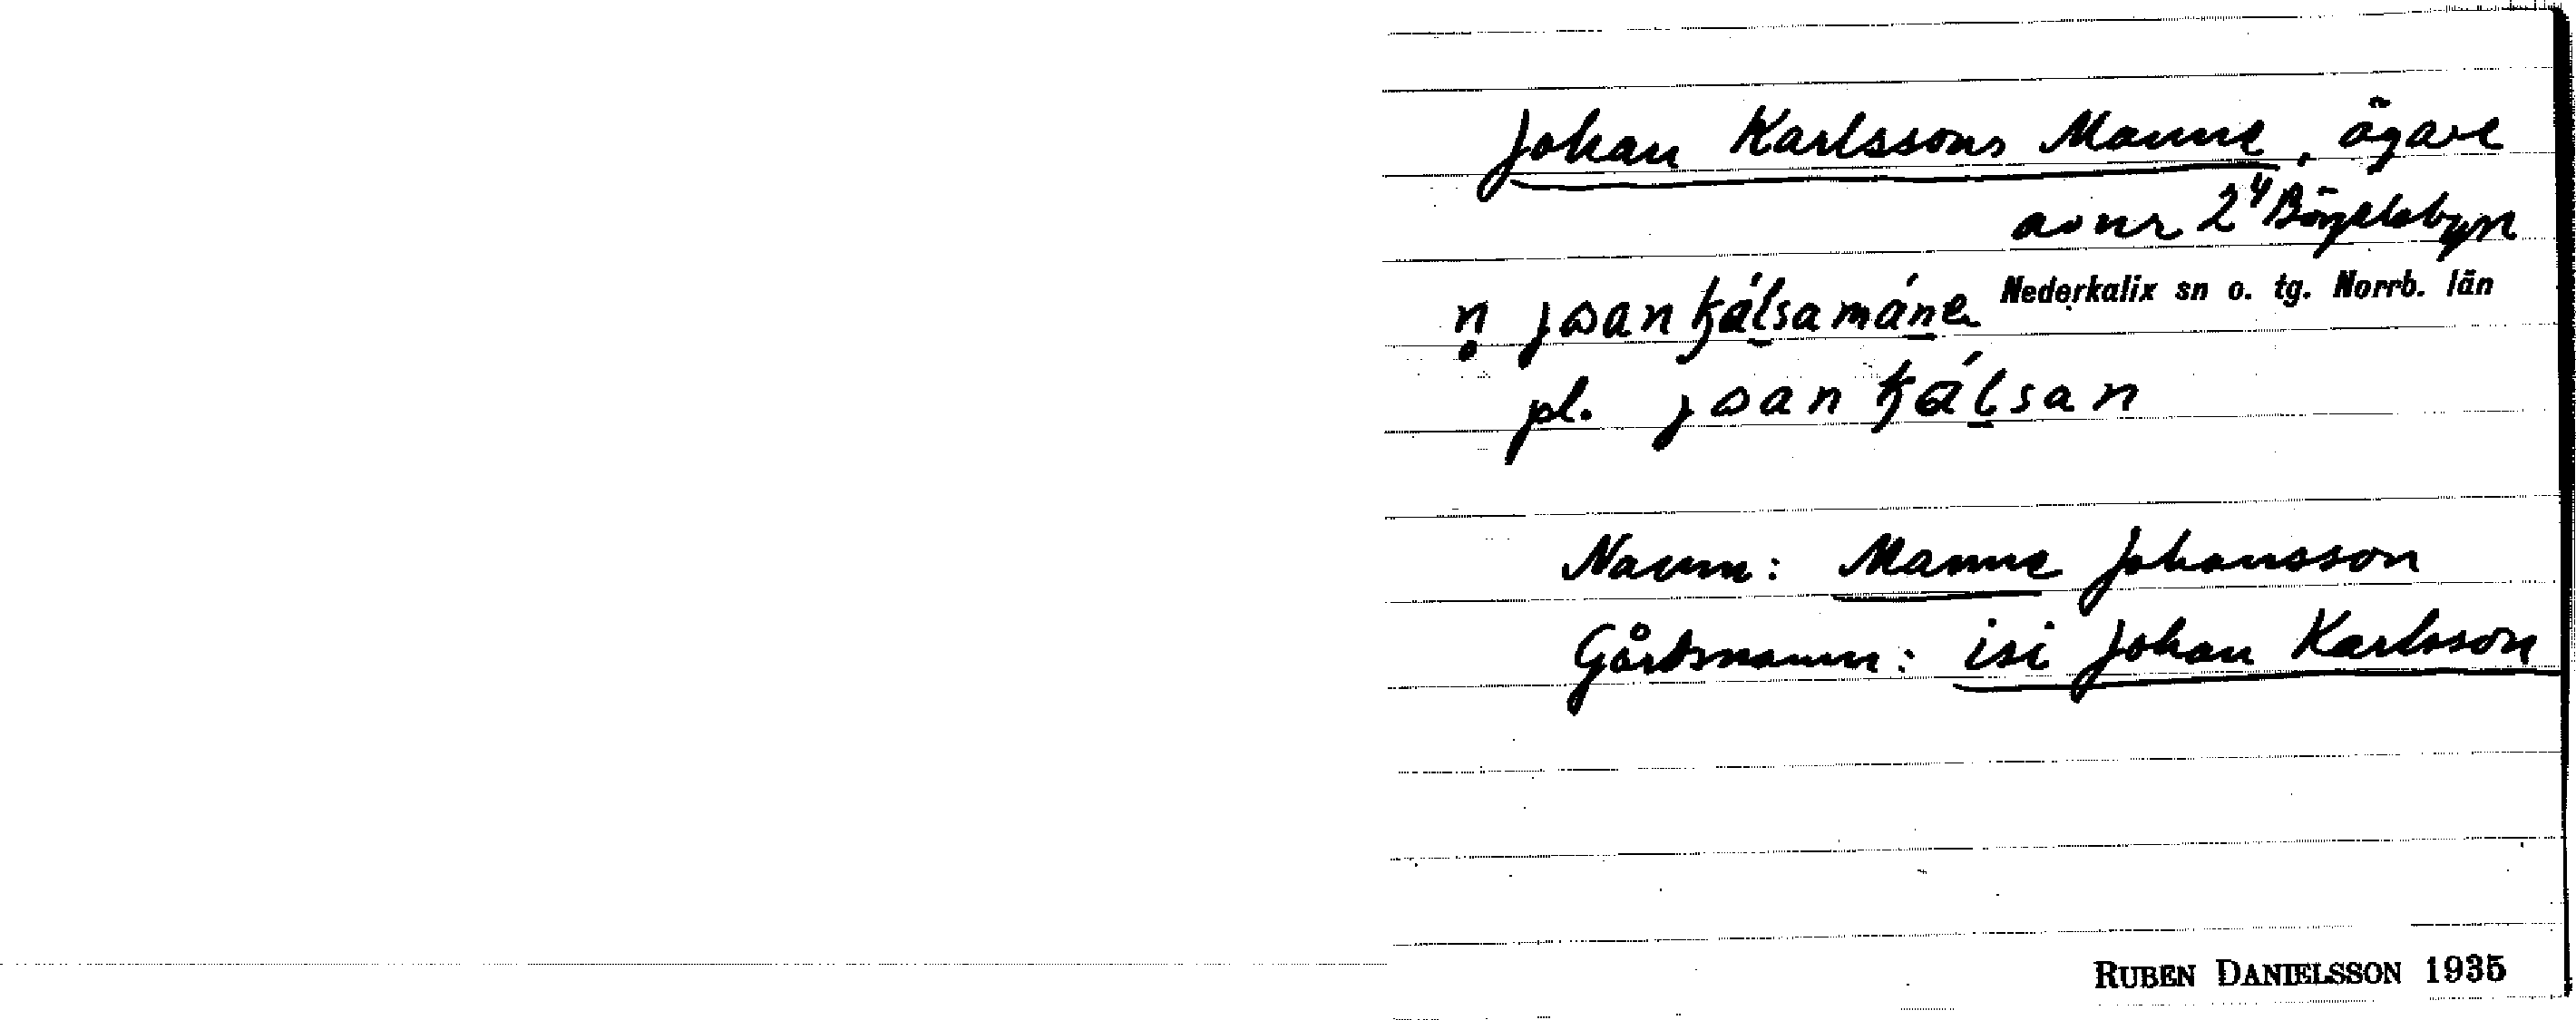 Johan Karlssons Manne, ägare
av nr 2⁴ Börjelsbyn
Nederkalix sn o. tg. Norrb. län
pl.
Namn: Manne Johansson
Gårdsnamn: isi Johan Karlsson
RUBEN DANIELSSON 1935